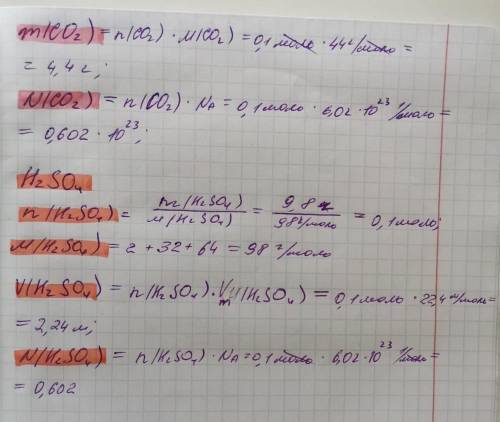 m(CO₂) = n(CO₂) · M(CO₂) = 0,1 моль · 44 г/моль =
= 4,4 г;
N(CO₂) = n(CO₂) · NA = 0,1 моль · 6,02 · 10²³ 1/моль =
= 0,602 · 10²³;
H₂SO₄
n(H₂SO₄) = m(H₂SO₄)/M(H₂SO₄) = 9,8 г/98 г/моль = 0,1 моль;
M(H₂SO₄) = 2 + 32 + 64 = 98 г/моль
V(H₂SO₄) = n(H₂SO₄) · Vm(H₂SO₄) = 0,1 моль · 22,4 л/моль =
= 2,24 л;
N(H₂SO₄) = n(H₂SO₄) · NA = 0,1 моль · 6,02 · 10²³ 1/моль =
= 0,602